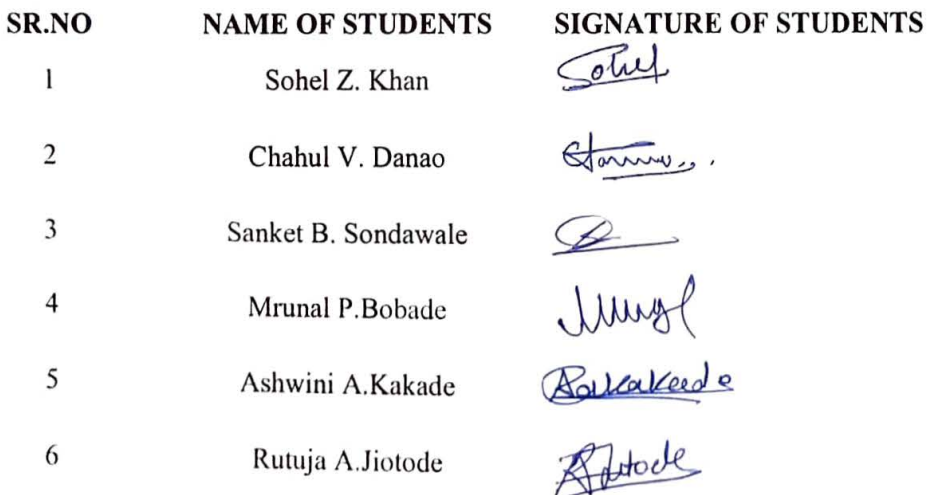 SR.NO NAME OF STUDENTS SIGNATURE OF STUDENTS
1 Sohel Z. Khan Sohel
2 Chahul V. Danao
3 Sanket B. Sondawale
4 Mrunal P.Bobade
5 Ashwini A.Kakade
6 Rutuja A.Jiotode